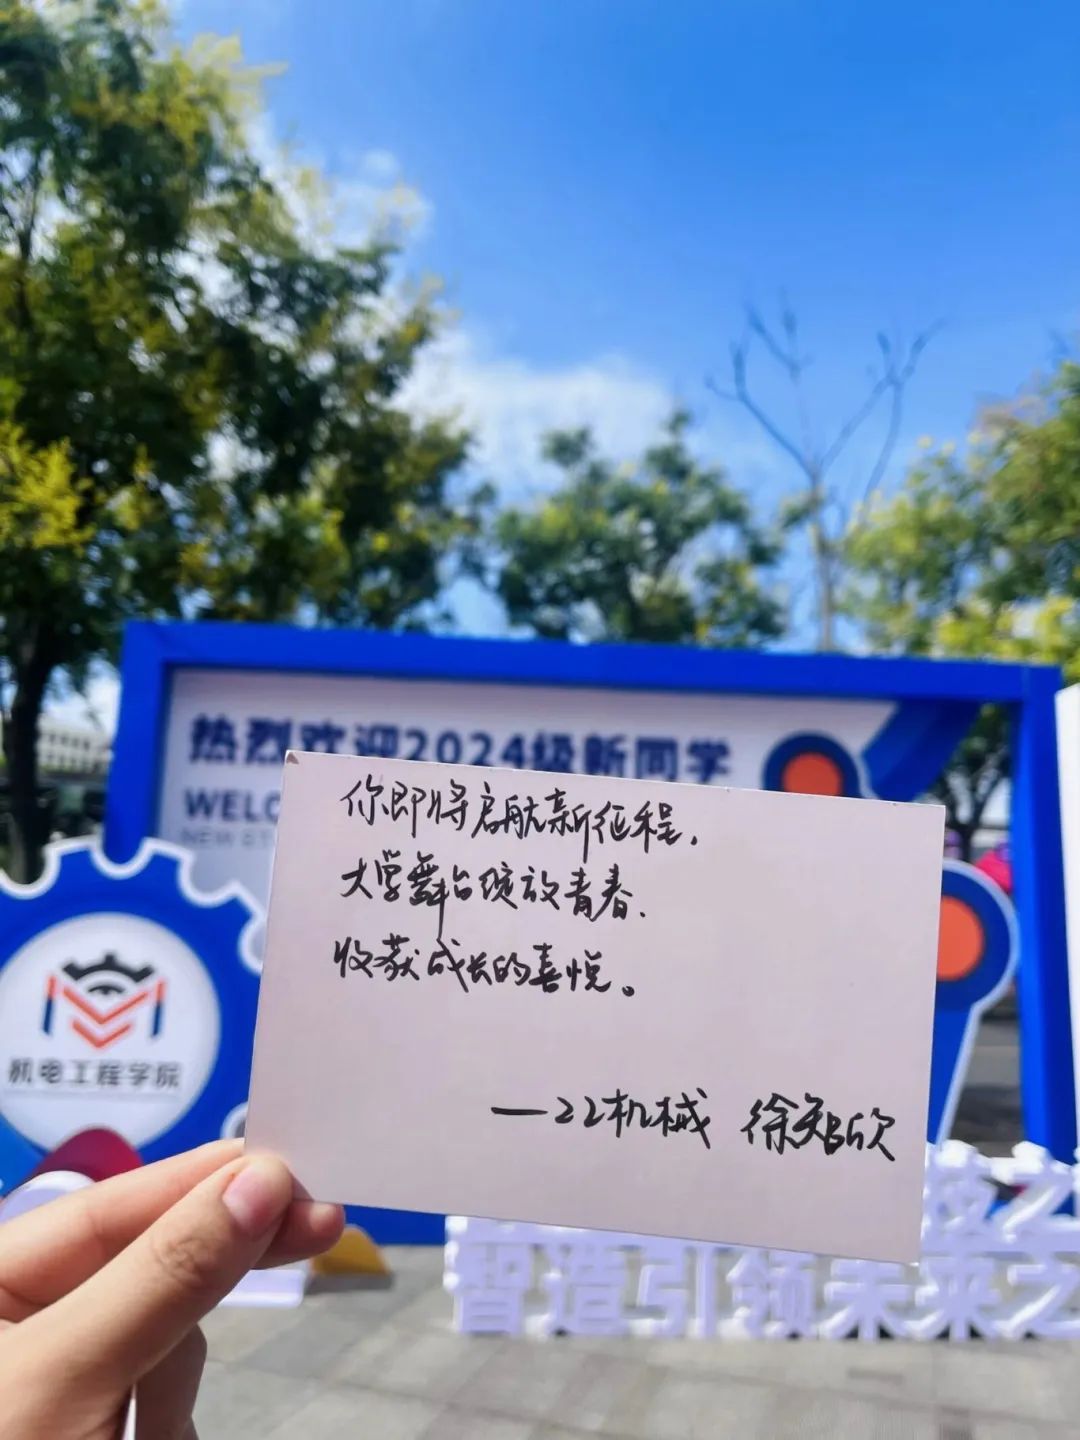 热烈欢迎2024级新同学
WELCO
NEW ST
你即将启航新征程，
大学舞台绽放青春，
收获成长的喜悦。
—22机械 徐知欣
机电工程学院
技之
智造引领未来之